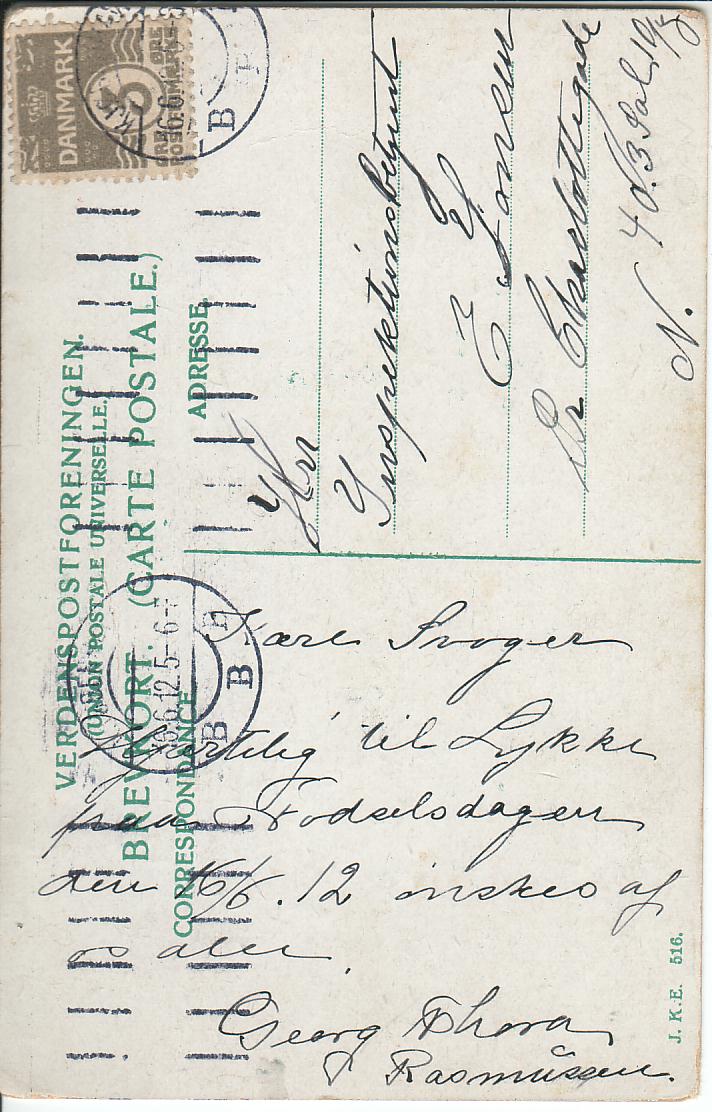 DANMARK
3
VERDENSPOSTFORENINGEN.
(UNION POSTALE UNIVERSELLE.)
BREVKORT. (CARTE POSTALE.)
CORRESPONDANCE
ADRESSE.
16.6.12.5-6
B B B
Hrr
Inspektionsbetjent
C
Charlottegade
4 3 Sal
N.
Kære Svoger
Hjærtelig til Lykke
paa Fødselsdagen
den 16/6.12 ønskes af
os alle.
Georg Thora
Rasmüssen.
J. K. E. 516.